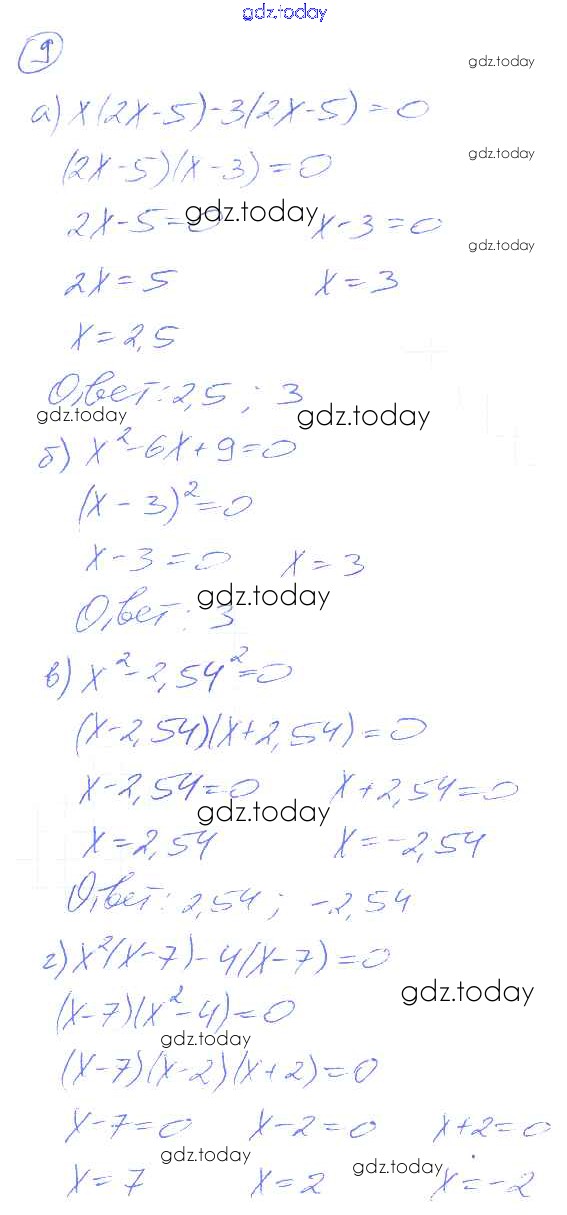 gdz.today
9
gdz.today
а) x(2x-5)-3(2x-5)=0
(2x-5)(x-3)=0
gdz.today
2x-5=0 x-3=0
gdz.today
gdz.today
2x=5 x=3
x=2,5
Ответ: 2,5 ; 3
gdz.today gdz.today
б) x²-6x+9=0
(x-3)²=0
x-3=0 x=3
gdz.today
Ответ: 3
в) x²-2,54²=0
(x-2,54)(x+2,54)=0
x-2,54=0 x+2,54=0
gdz.today
x=2,54 x=-2,54
Ответ: 2,54 ; -2,54
г) x²(x-7)-4(x-7)=0
gdz.today
(x-7)(x²-4)=0
gdz.today
(x-7)(x-2)(x+2)=0
x-7=0 x-2=0 x+2=0
gdz.today gdz.today
x=7 x=2 x=-2